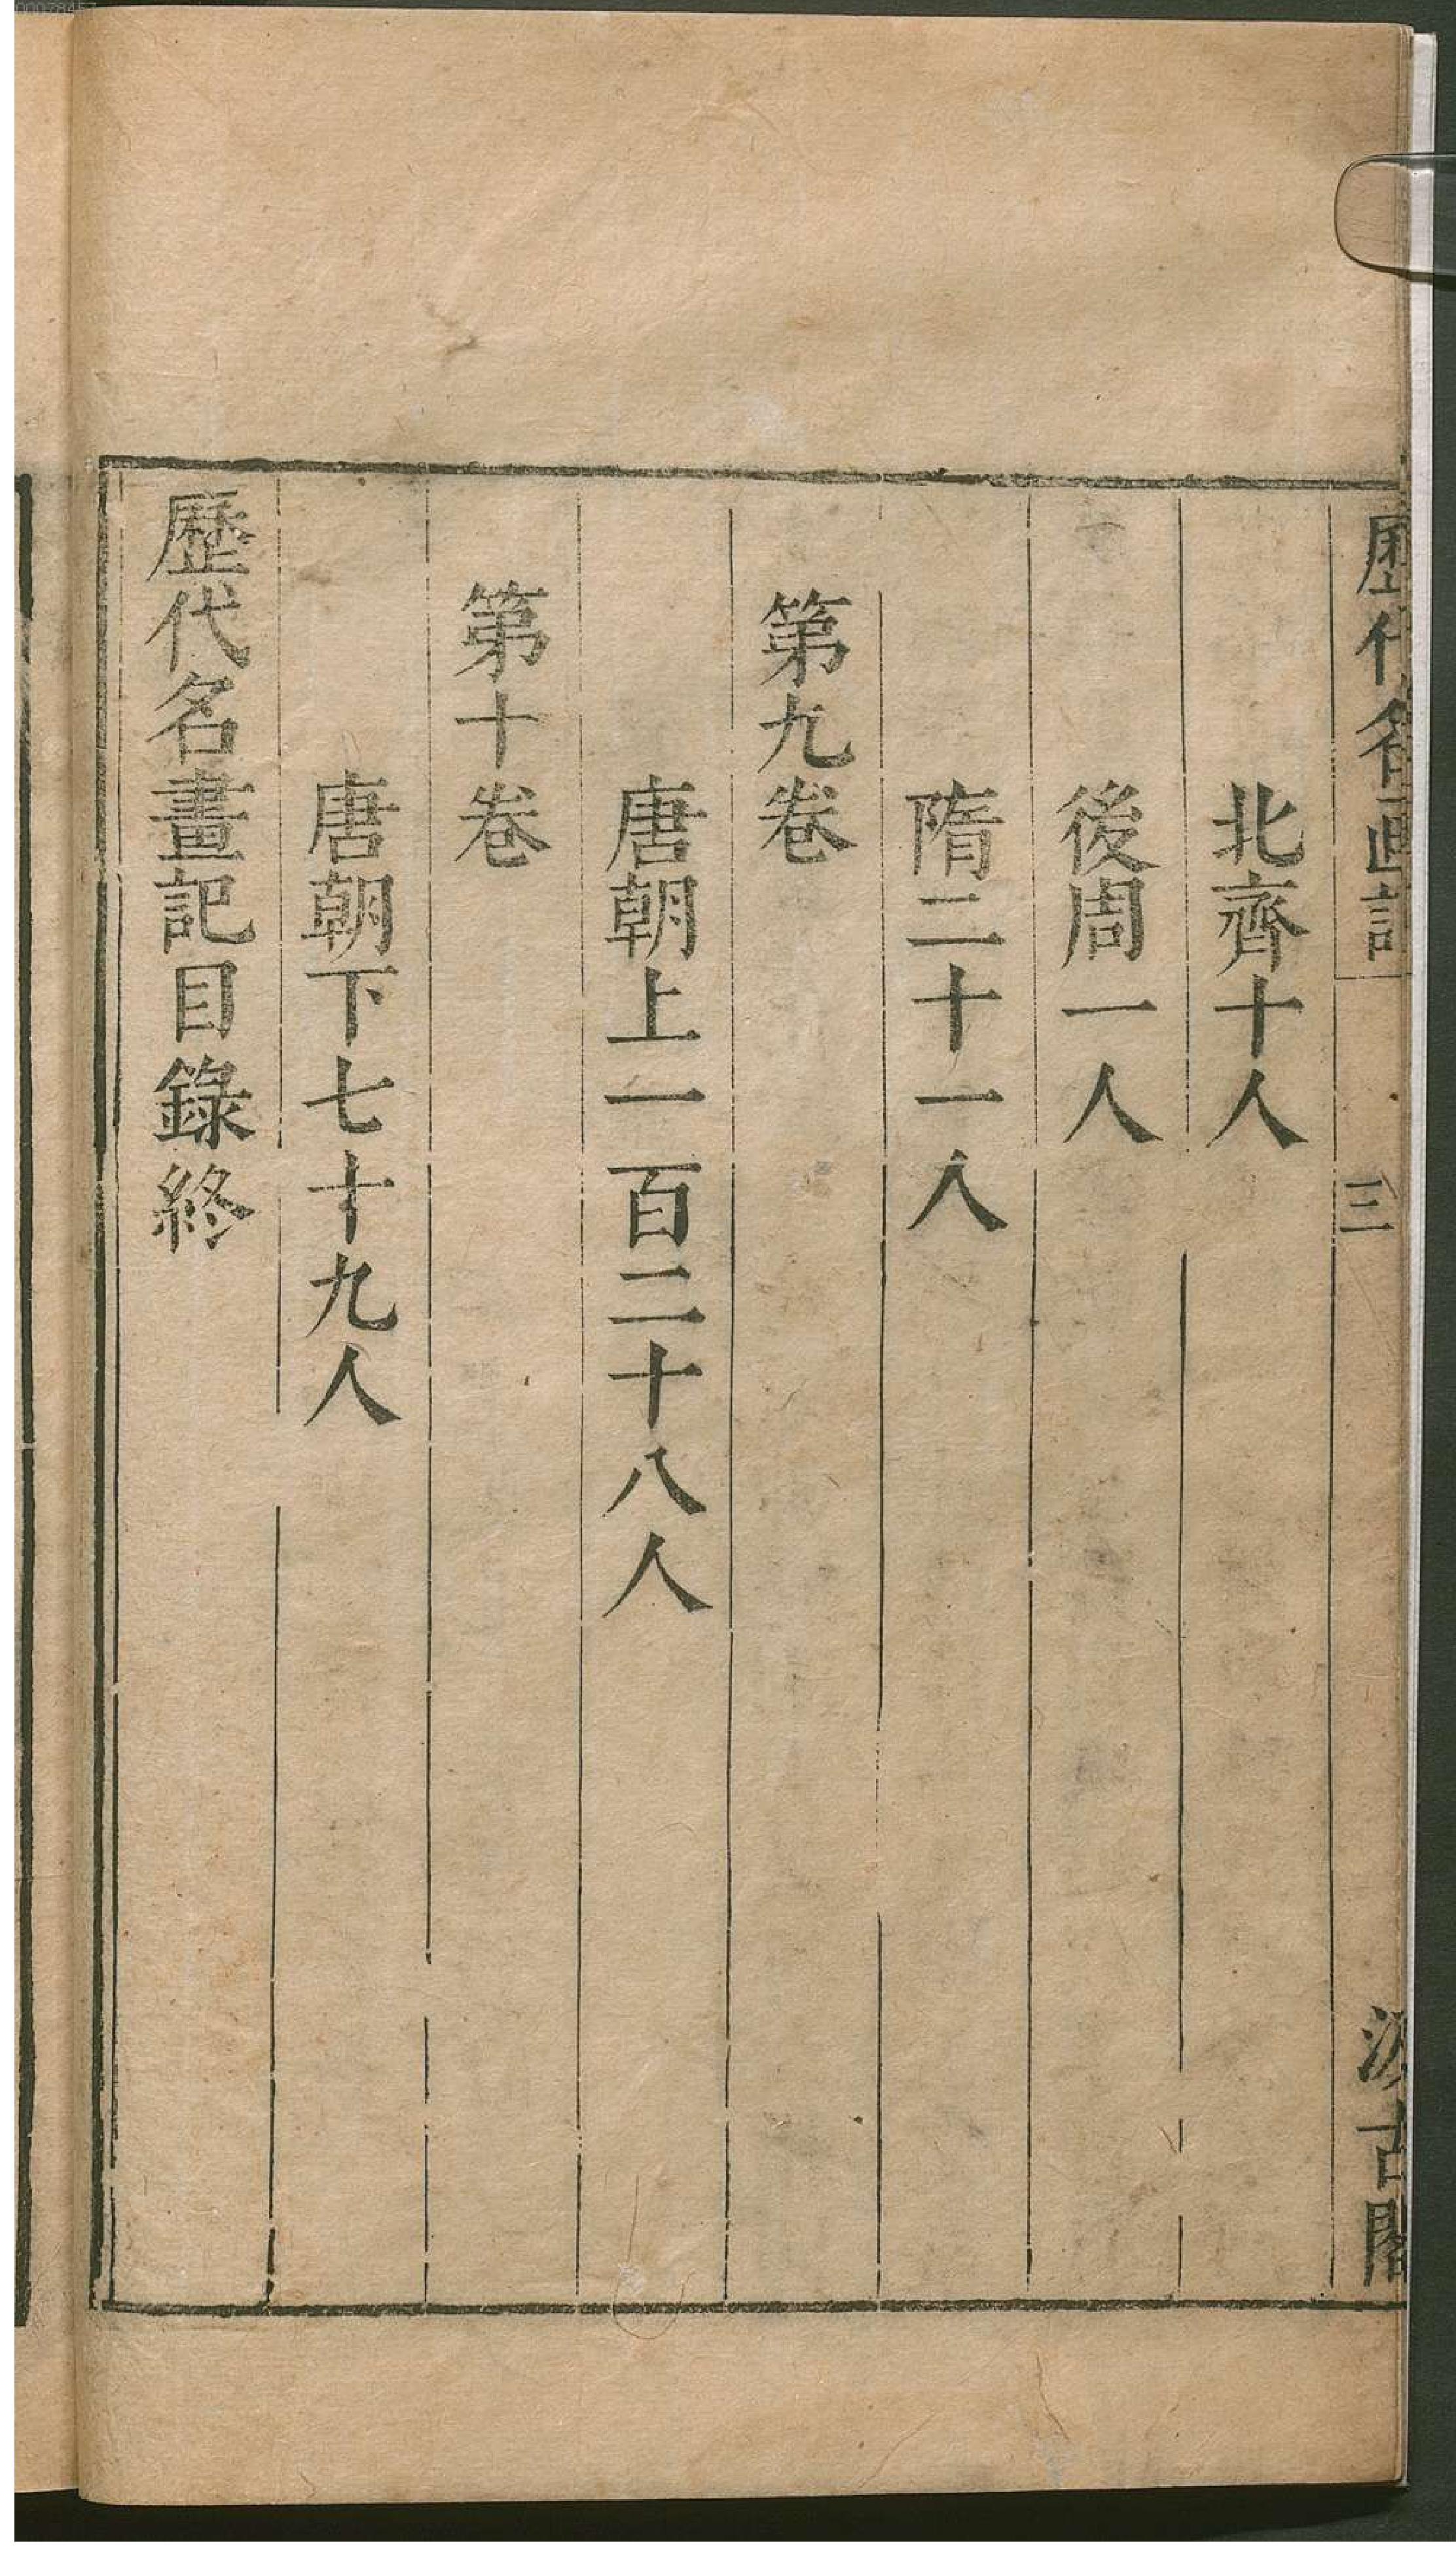 歷代名畫記
三
汲古閣
北齊十人
後周一人
隋二十一人
第九卷
唐朝上一百二十八人
第十卷
唐朝下七十九人
歷代名畫記目錄終